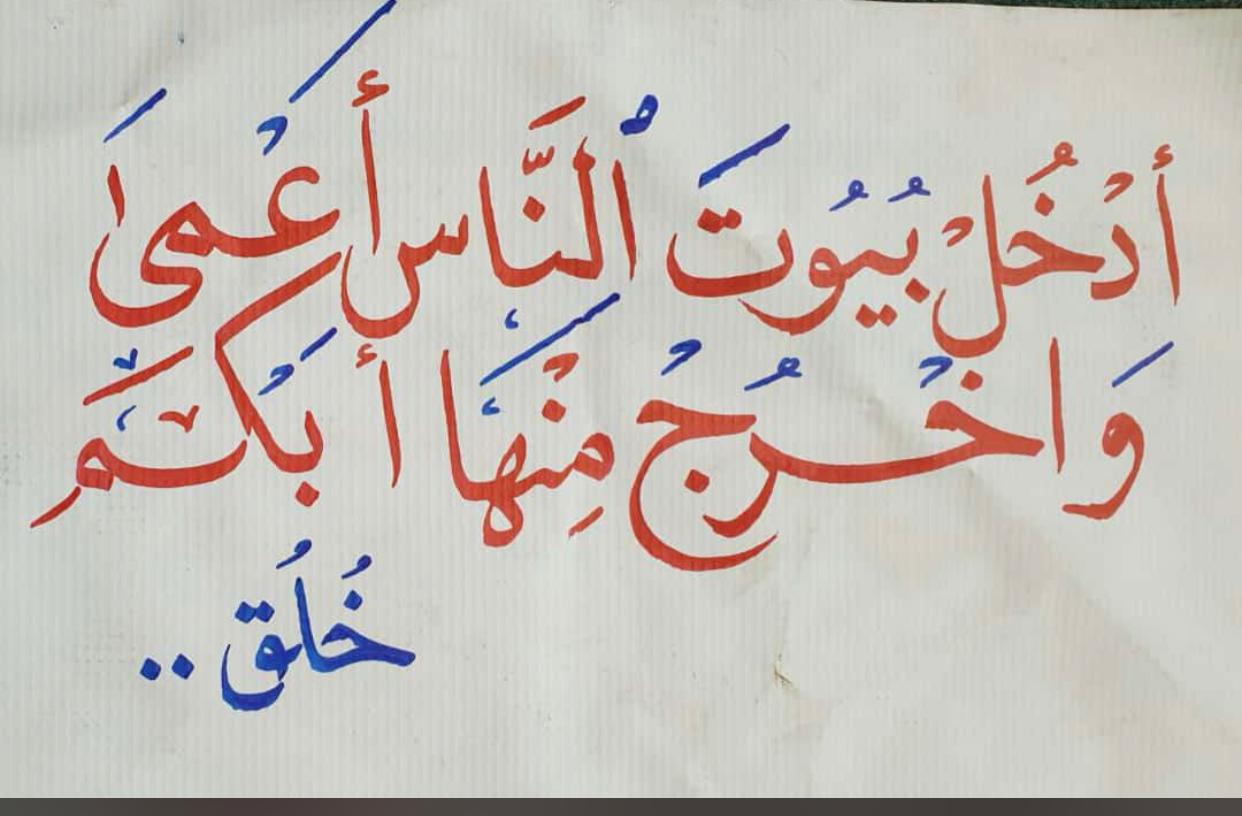 أدْخُلْ بُيُوتَ ٱلنَّاسِ أَعْمىَ
وَاخْرُجْ مِنْهَا أَبْكَمْ
خُلُق ..